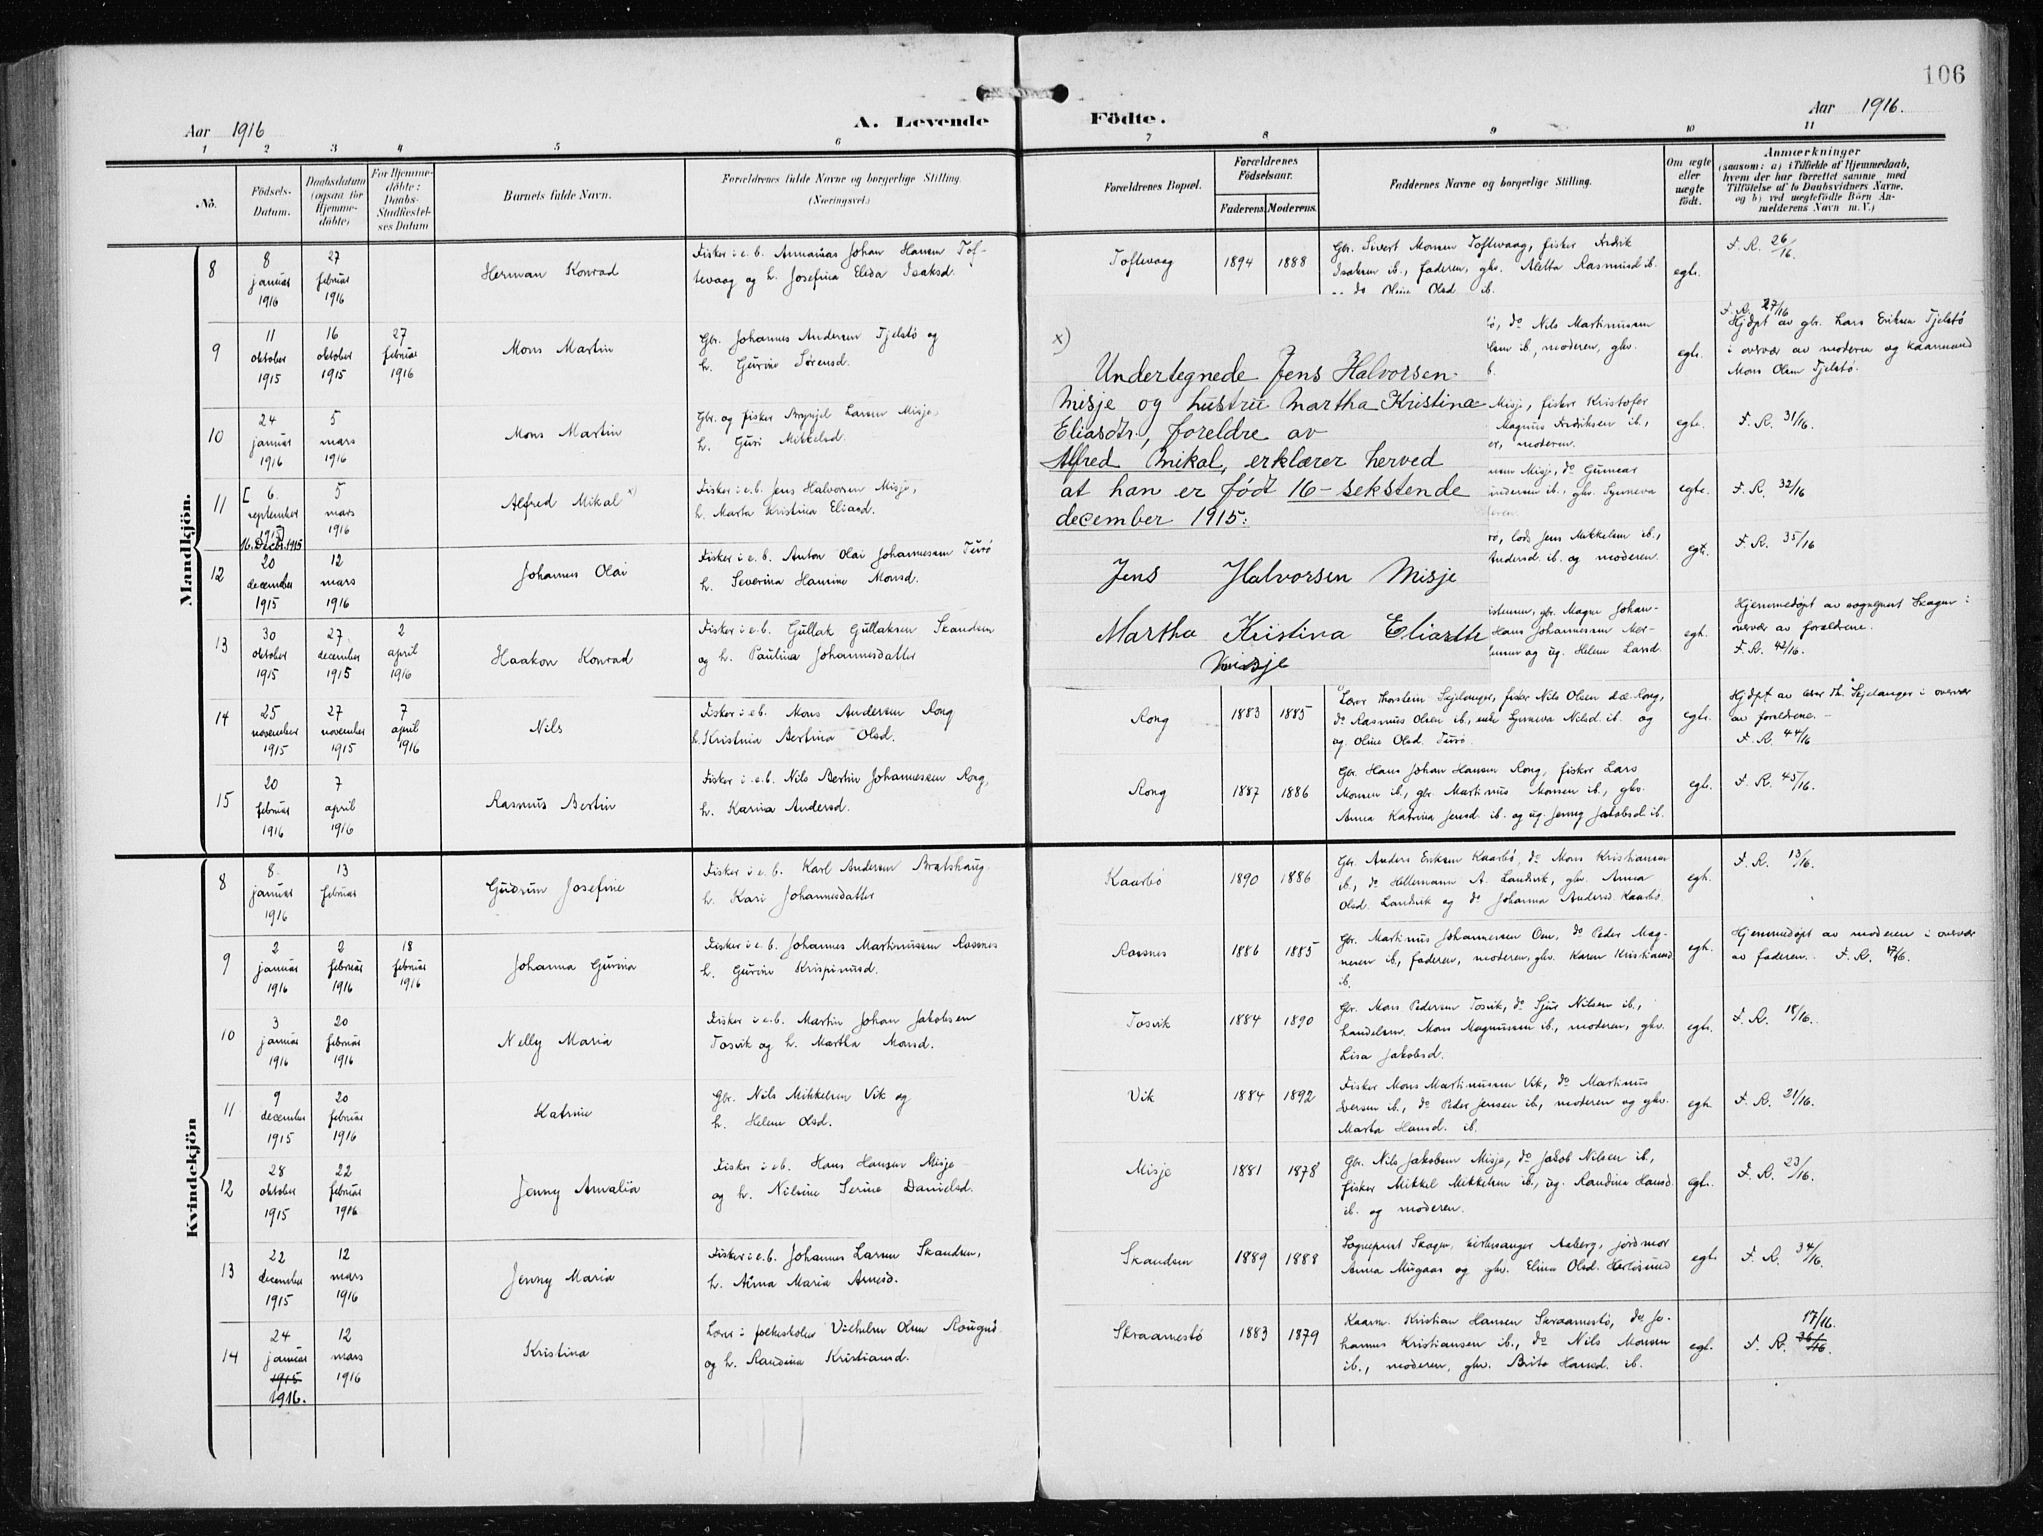 106
Aar 1916
A. Levende
Födte.
Aar 1916.
1 2 3 4 5 6 7 8 9 10 11
No.
Födsels-
Datum.
Daabsdatum
(ogsaa for
Hjemme-
döbte)
For Hjemme-
döbte:
Daabs-
Stadfæstel-
ses Datum
Barnets fulde Navn.
Forældrenes fulde Navne og borgerlige Stilling.
(Næringsvei.)
Forældrenes Bopæl.
Forældrenes
Födselsaar.
Faderens. Moderens.
Faddernes Navne og borgerlige Stilling.
Om ægte
eller
uægte
født.
Anmærkninger
(saasom: a) i Tilfælde af Hjemmedaab,
hvem der har forrettet samme med
Tilföielse af to Daabsvidners Navne,
og b) ved uægtefödte Börn An-
melderens Navn m. V.)
Mandkjön.
8
8
januar
1916
27
februar
1916
Herman Konrad
Fisker i e. b. Annanias Johan Hansen Tof-
tevaag og h. Josefina Elida Isaksd.
Toftevaag
1894 1888
Gbr. Sivert Monsen Toftevaag, fisker Fredrik
Isaksen ib., faderen, gkv. Aletta Rasmusd. ib.
og do Oline Olsd. ib.
egte.
F. R. 26/16.
9
11
oktober
1915
16
oktober
1915
27
februar
1916
Mons Martin
Gbr. Johannes Andersen Tjelstø og
h. Gurine Sørensd.
do Nils Martinussen
ib., moderen, gkv.
egte.
F. R. 27/16
Hjdøpt av gbr. Lars Eriksen Tjelstø
i overvær av moderen og kaarmand
Mons Olsen Tjelstø.
10
24
januar
1916
5
mars
1916
Mons Martin
Gbr. og fisker Brynjel Larsen Misje,
h. Guri Mikkelsd.
Misje, fisker Kristofer
Magnus Fredriksen ib.,
moderen.
egte.
F. R. 31/16.
11
[6.
september
1915]
16. Decbr. 1915
5
mars
1916
Alfred Mikal x)
Fisker i e. b. Jens Halvorsen Misje,
h. Marta Kristina Eliasd.
Misje, do Gunnar
ib., gkv. Synneva
egte.
F. R. 32/16
12
20
december
1915
12
mars
1916
Johannes Olai
Fisker i e. b. Anton Olai Johannessen Turø
h. Severina Hansine Monsd.
lods Jens Mikkelsen ib.,
Andersd. ib. og moderen.
egte.
F. R. 35/16
13
30
oktober
1915
27
december
1915
2
april
1916
Haakon Konrad
Fisker i e. b. Gullak Gullaksen Skandsen
og h. Paulina Johannesdatter
gbr. Magne Johan-
Hans Johannessen
og ug. Helene Larsd.
egte.
Hjemmedøpt av sogneprest Skagen i
overvær av forældrene.
F. R. 42/16.
x)
Undertegnede Jens Halvorsen
Misje og hustru Martha Kristina
Eliasdtr, foreldre av
Alfred Mikal, erklærer herved
at han er født 16 - sekstende
december 1915:
Jens Halvorsen Misje
Martha Kristina Eliasdtte
Misje
14
25
november
1915
27
november
1915
7
april
1916
Nils
Fisker i e b. Mons Andersen Rong
h. Kristnia Bertina Olsd.
Rong
1883 1885
Lærer Thorstein Skjelanger, fisker Nils Olsen d.æ. Rong,
do Rasmus Olsen ib., enke Synneva Nilsd. ib. og
ug. Oline Olsd. Turø.
egte.
Hjdpt av lærer Th. Skjelanger i overvær
av forældrene. -
F. R. 44/16
15
20
februar
1916
7
april
1916
Rasmus Bertin
Fisker i e. b. Nils Bertin Johannessen Rong,
h. Karina Andersd.
Rong
1887 1886
Gbr. Hans Johan Hansen Rong, fisker Lars
Monsen ib., gbr. Martinus Monsen ib., gkv.
Anna Katrina Jensd. ib. og ug. Jenny Jakobsd. ib.
egte.
F. R. 45/16.
Kvindekjön
8
8.
januar
1916
13
februar
Gudrun Josefine
Fisker i e. b. Karl Andersen Bratshaug.
h. Kari Johannesdatter
Kaarbø
1890 1886
Gbr. Anders Eriksen Kaarbø, do Mons Kristiansen
ib., do Hellemann A. Landvik, gkv. Anna
Olsd. Landvik og do Johanna Andersd. Kaarbø.
egte.
F. R. 13/16.
9
2
januar
1916
2
februar
1916
18
februar
1916
Johanna Gurina
Fisker i e. b. Johannes Martinussen Rossnes
h. Gurine Krispinusd.
Rossnes
1886 1885
Gbr. Martinus Johannessen Oen, do Peder Mag-
nesen ib., faderen, moderen, gkv. Karen Kristiansd.
ib.
egte.
Hjemmedøpt av moderen i overvær
av faderen. F. R. 17/16.
10
3
januar
1916
20
februar
1916
Nelly Maria
Fisker i e. b. Martin Johan Jakobsen
Tosvik og h. Martha Monsd.
Tosvik
1884 1890
Gbr. Mons Pedersen Tosvik, do Sjur Nilsen ib.,
handelsm. Mons Magnussen ib., moderen, gkv.
Lisa Jakobsd.
egte.
F. R. 18/16.
11
9
december
1915
20
februar
1916
Katrine
Gbr. Nils Mikkelsen Vik og
h. Helene Olsd.
Vik
1884 1892
Fisker Mons Martinussen Vik, do Martinus
Iversen ib., do Peder Jensen ib., moderen og gkv.
Marta Hansd. ib.
egte.
F. R. 21/16.
12
28
oktober
1915
22
februar
1916
Jenny Amalia
Fisker i e b. Hans Hansen Misje
og h. Nilsine Serine Danielsd.
Misje
1881 1878
Gbr. Nils Jakobsen Misje, do Jakob Nilsen ib.,
fisker Mikkel Mikkelsen ib., ug. Randina Hansd.
ib. og moderen.
egte.
F. R. 23/16.
13
22
december
1915
12
mars
1916
Jenny Maria
Fisker i e. b. Johannes Larsen Skandsen,
h. Anna Maria Arnesd.
Skandsen
1889 1888
Sogneprest Skagen, kirkesanger Aaberg, jordmor
Anna Mugaas og gkv. Elina Olsd. Herløsund
egte.
F. R. 34/16.
14
24
januar
1915
1916.
12
mars
1916
Kristina
Lærer i folkeskolen Vilhelm Olsen Rougnø
og h. Randina Kristiansd.
Skraamestø
1883 1879
Kaarm. Kristian Hansen Skraamestø, do Jo-
hannes Kristiansen ib., do Nils Monsen
ib., moderen, gkv. Brita Hansd. ib.
egt.
17/16.
F. R. 36/16.